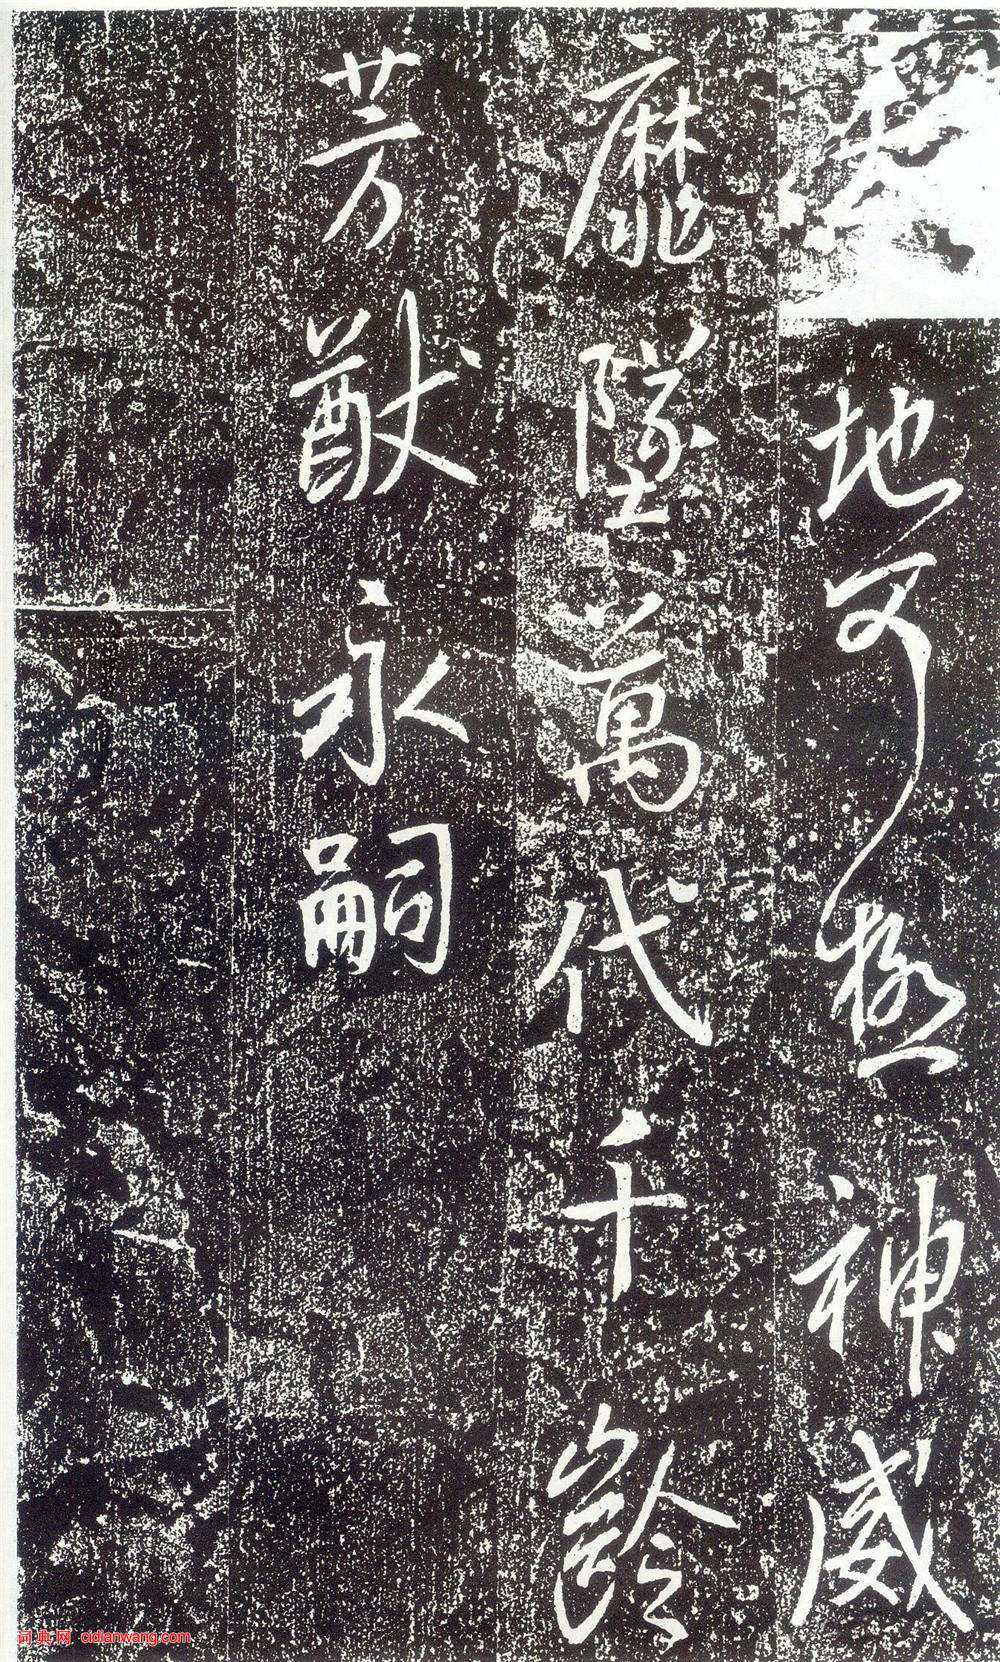 地可極神威
靡墜萬代千齡
芳猷永嗣
词典网 cidianwang.com